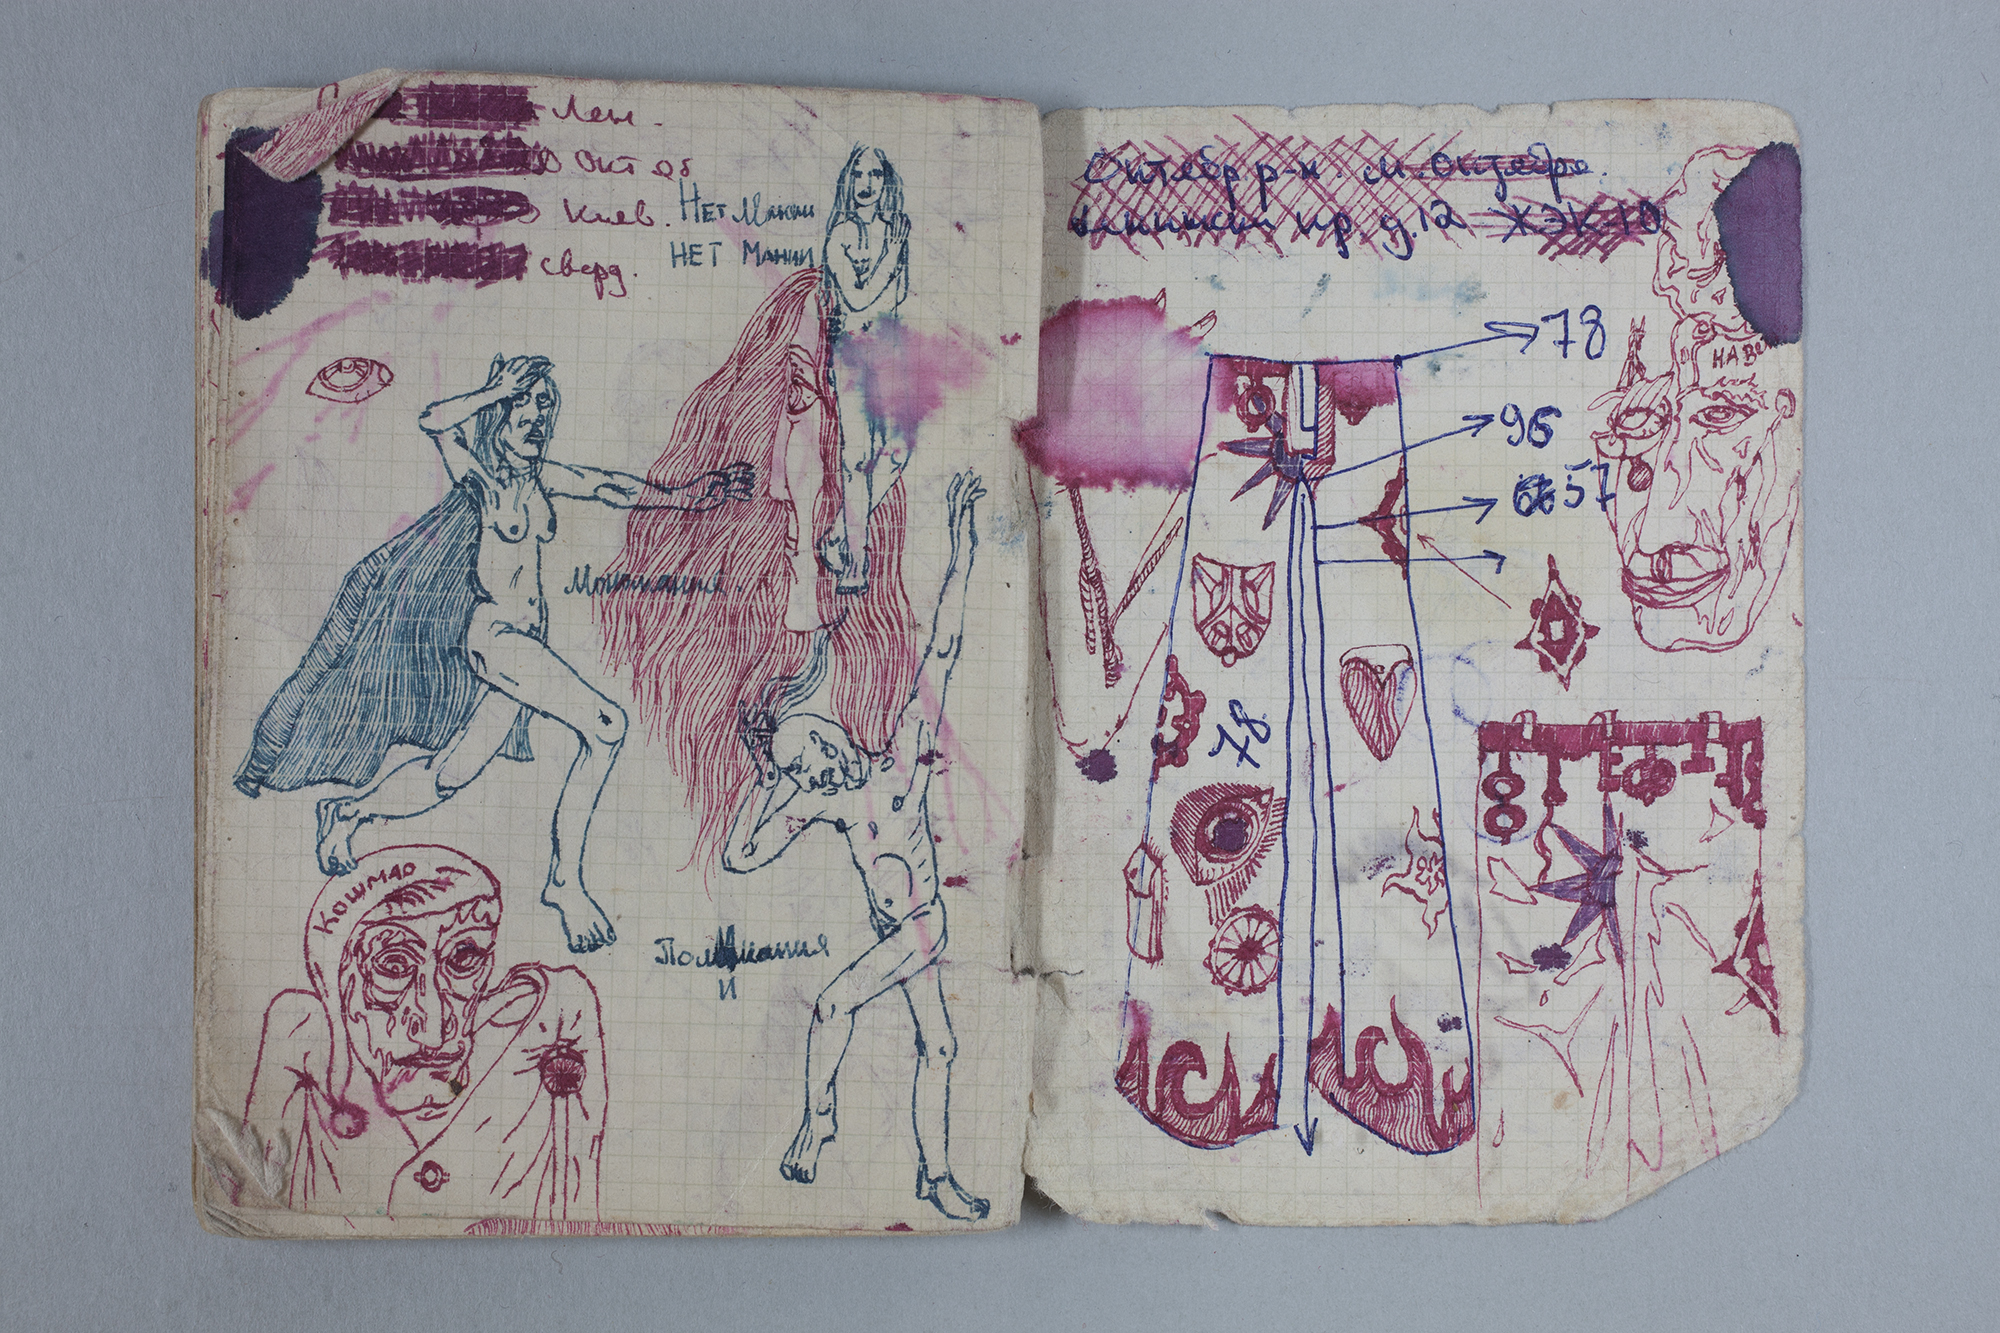 Лен.
Октяб
Киев.
сверд.
Нет Мании
НЕТ Мании
Мономания.
ПолМмания
и
Кошмар
Октябр р-н. м. Октябрс.
пр д.12 ЖЭК-10
78
96
57
78
НАВ